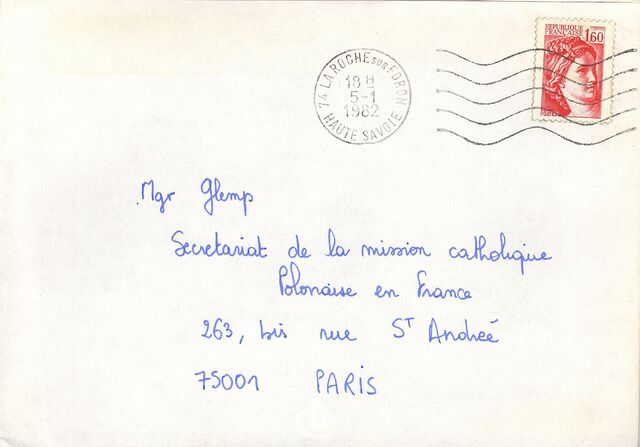 REPUBLIQUE
FRANCAISE
1,60
74 LA ROCHE sur FORON
18 H
5-1
1982
HAUTE SAVOIE
Mgr Glemp
Secretariat de la mission catholique
Polonaise en France
263, bis rue St Andréé
75001 PARIS